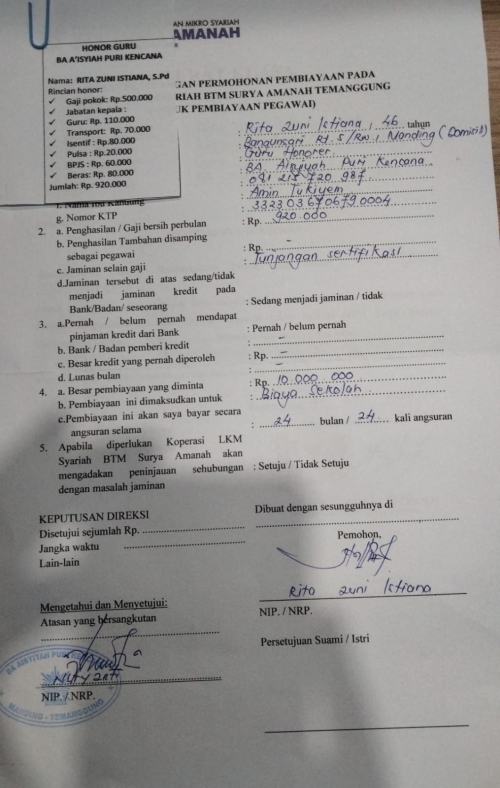 AN MIKRO SYARIAH
AMANAH
HONOR GURU
BA A'ISYIAH PURI KENCANA
Nama: RITA ZUNI ISTIANA, S.Pd
Rincian honor:
✓ Gaji pokok: Rp.500.000
✓ Jabatan kepala :
✓ Guru: Rp. 110.000
✓ Transport: Rp. 70.000
✓ Isentif : Rp.80.000
✓ Pulsa : Rp.20.000
✓ BPJS : Rp. 60.000
✓ Beras: Rp. 80.000
Jumlah: Rp. 920.000
GAN PERMOHONAN PEMBIAYAAN PADA
RIAH BTM SURYA AMANAH TEMANGGUNG
UK PEMBIAYAAN PEGAWAI)
: Rita Zuni Istiana, 46 tahun
: Bangunsari Rt 5/Rw 1 Manding (Domisili)
: Guru Honorer
: BA Aisyiyah Puri Kencana
: 081 215 720 987
f. Nama Ibu Kandung : Amin Tukiyem
g. Nomor KTP : 3323036706790004
2. a. Penghasilan / Gaji bersih perbulan : Rp. 920 000
b. Penghasilan Tambahan disamping
sebagai pegawai : Rp. -
c. Jaminan selain gaji : Tunjangan sertifikasi
d.Jaminan tersebut di atas sedang/tidak
menjadi jaminan kredit pada : Sedang menjadi jaminan / tidak
Bank/Badan/ seseorang
3. a.Pernah / belum pernah mendapat
pinjaman kredit dari Bank : Pernah / belum pernah
b. Bank / Badan pemberi kredit : -
c. Besar kredit yang pernah diperoleh : Rp. -
d. Lunas bulan : -
4. a. Besar pembiayaan yang diminta : Rp. 10.000 000
b. Pembiayaan ini dimaksudkan untuk : Biaya Sekolah
c.Pembiayaan ini akan saya bayar secara
angsuran selama : 24 bulan / 24 kali angsuran
5. Apabila diperlukan Koperasi LKM
Syariah BTM Surya Amanah akan
mengadakan peninjauan sehubungan : Setuju / Tidak Setuju
dengan masalah jaminan
KEPUTUSAN DIREKSI
Disetujui sejumlah Rp.
Jangka waktu
Lain-lain
Dibuat dengan sesungguhnya di
Pemohon,
Rita Zuni Istiana
NIP. / NRP.
Mengetahui dan Menyetujui:
Atasan yang bersangkutan
NIP. / NRP.
Persetujuan Suami / Istri
MANDING - TEMANGGUNG